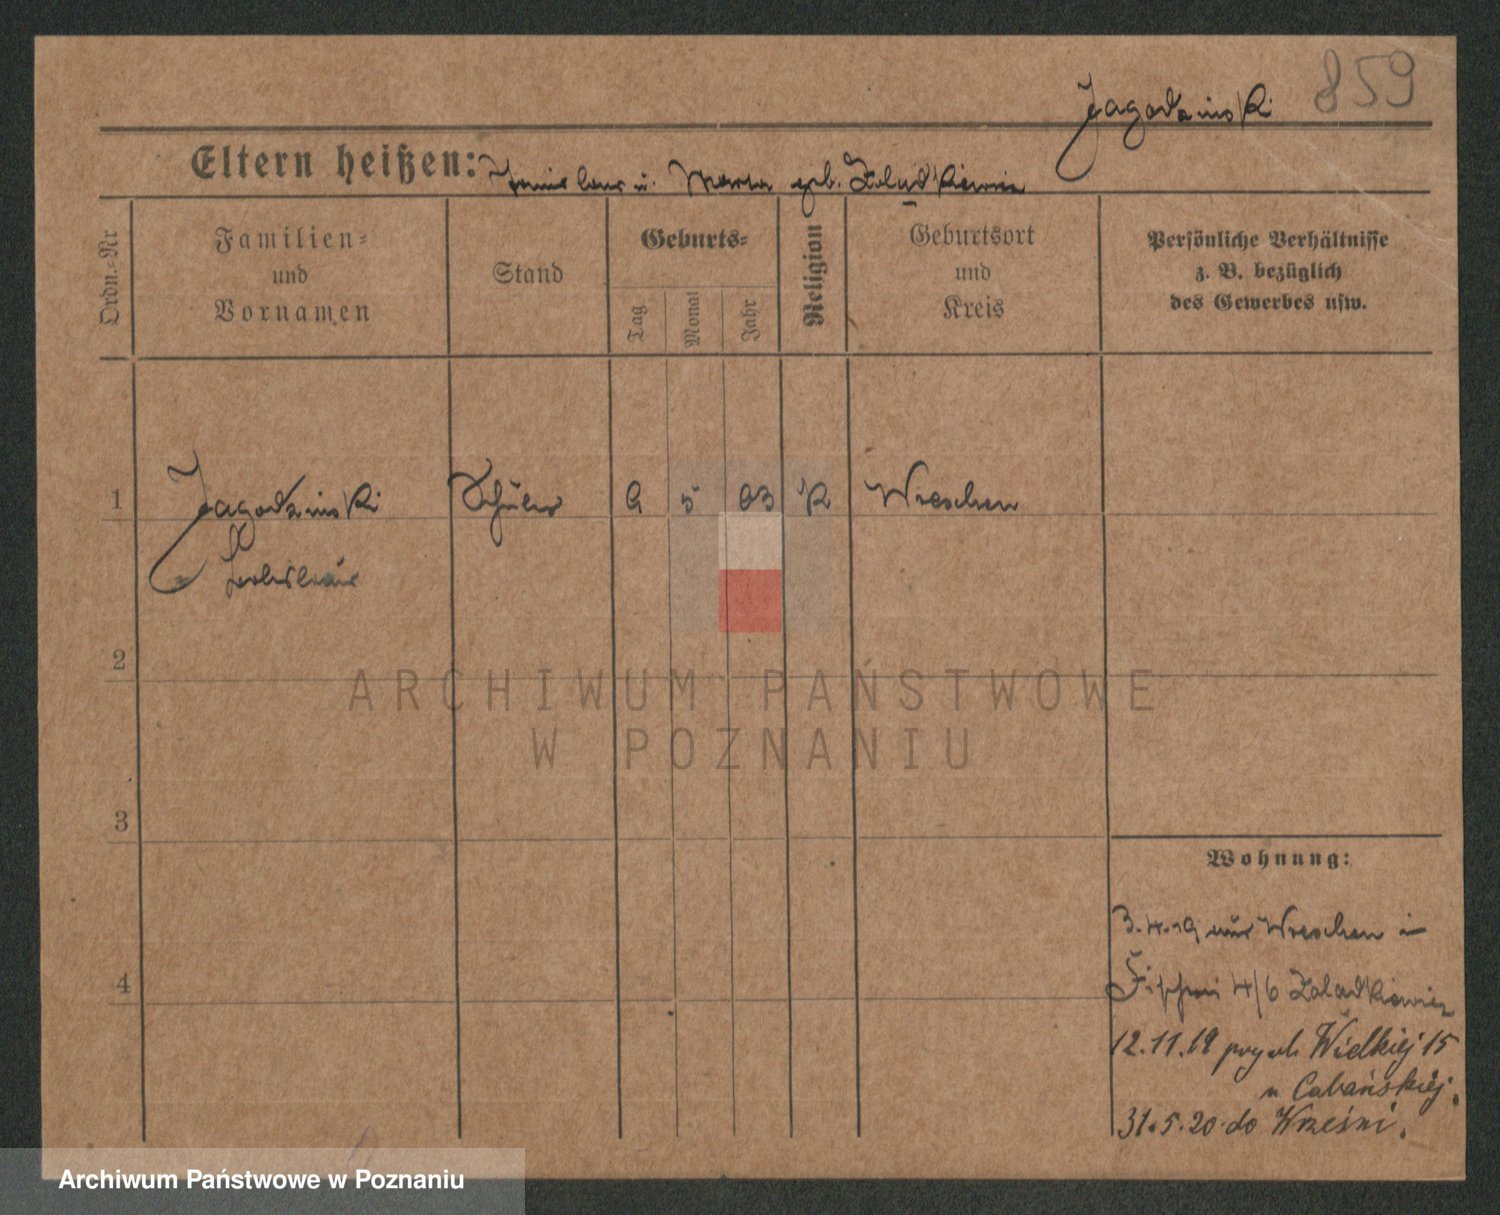 859
Jagodzinski
Eltern heißen: u. Maria geb. Zaladkiewicz
Ordn.-Nr
Familien-
und
Vornamen
Stand
Geburts-
Tag
Monat
Jahr
Religion
Geburtsort
und
Kreis
Persönliche Verhältnisse
z. B. bezüglich
des Gewerbes usw.
1 Jagodzinski Schüler 9 5 03 K Wreschen
2
3
4
Wohnung:
3.4.19 aus Wreschen in
4/6 Zaladkiewicz
12.11.19 przy ul. Wielkiej 15
u Cabańskiej.
31.5.20 do Wrześni.
ARCHIWUM PAŃSTWOWE
W POZNANIU
Archiwum Państwowe w Poznaniu